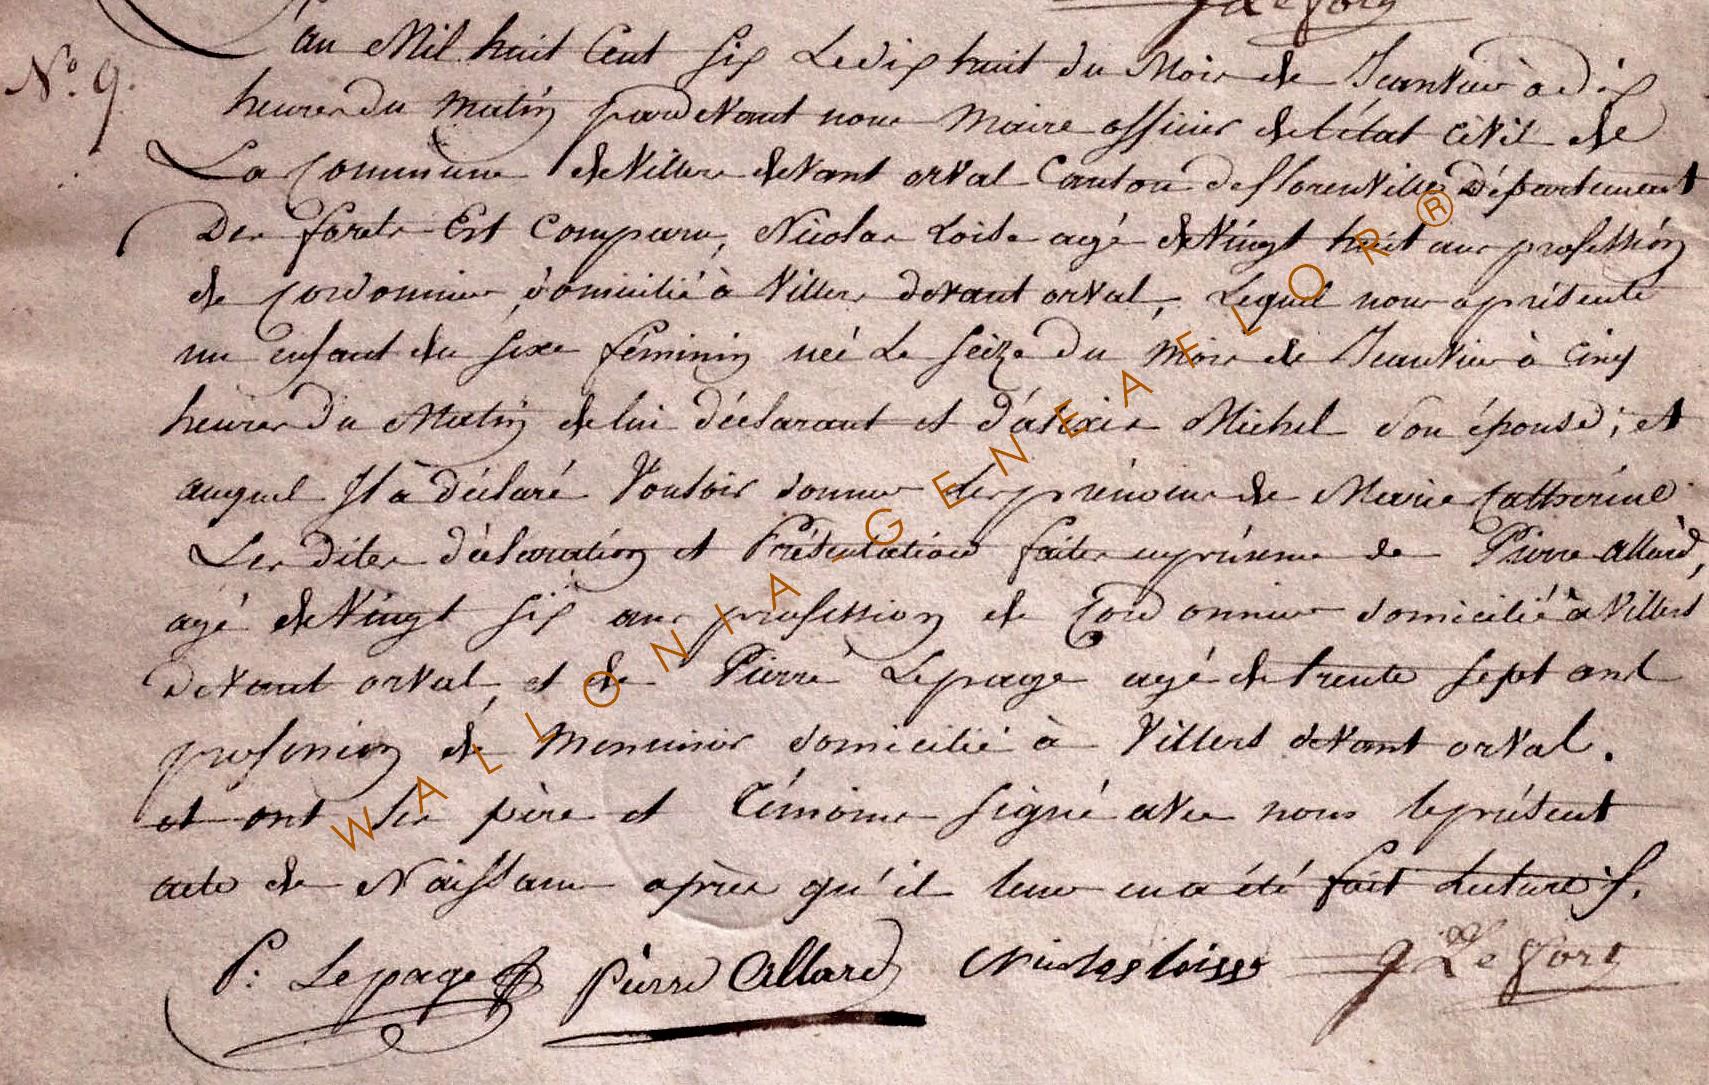 G Le Fort
N.o 9.
L'an Mil huit Cent six Le dix huit du Mois de Jeanvier à dix
heures du matin pardevant nous Maire officier de l'état civil de
La Commune de Villers devant orval Canton de florenville Département
Des forets Est comparu, Nicolas Loise agé de vingt huit ans profession
de Cordonnier, domicilié à Villers devant orval, Lequel nous a présenté
un enfant du sexe féminin neé Le seize du Mois de Jeanvier à cinq
heures du Matin de lui déclarant et d'aléxis Michel son épouse; et
auquel Il à déclaré Vouloir donner les prénoms de Marie Catherine
Les dites déclaration et Présentation faites en présence de Pierre allard,
agé de Vingt six ans profession de Cordonnier domicilié à Villers
devant orval, et de Pierre Lepage agé de trente sept ans
profession de Menuisier domicilié à Villers devant orval.
et ont les père et Témoins signé avec nous le présent
acte de Naissance après qu'il leur en a été fait Lecture
P: Lepage Pierre Allard Nicolas loisse G Le Fort
WALLONIA-GENEAFLOR®